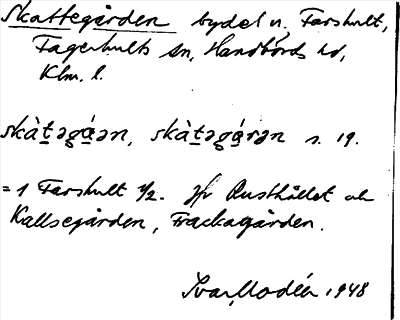 Skattegården bydel u. Farshult,
Fagerhults sn, Handbörds hd,
Klm. l.
skàt̠əgá̠ən, skàt̠əgá̠rən s. 19.
= 1 Farshult 1/2. Jfr Rusthållet och
Kallsegården, Frackagården.
Ivar Modéer 1948